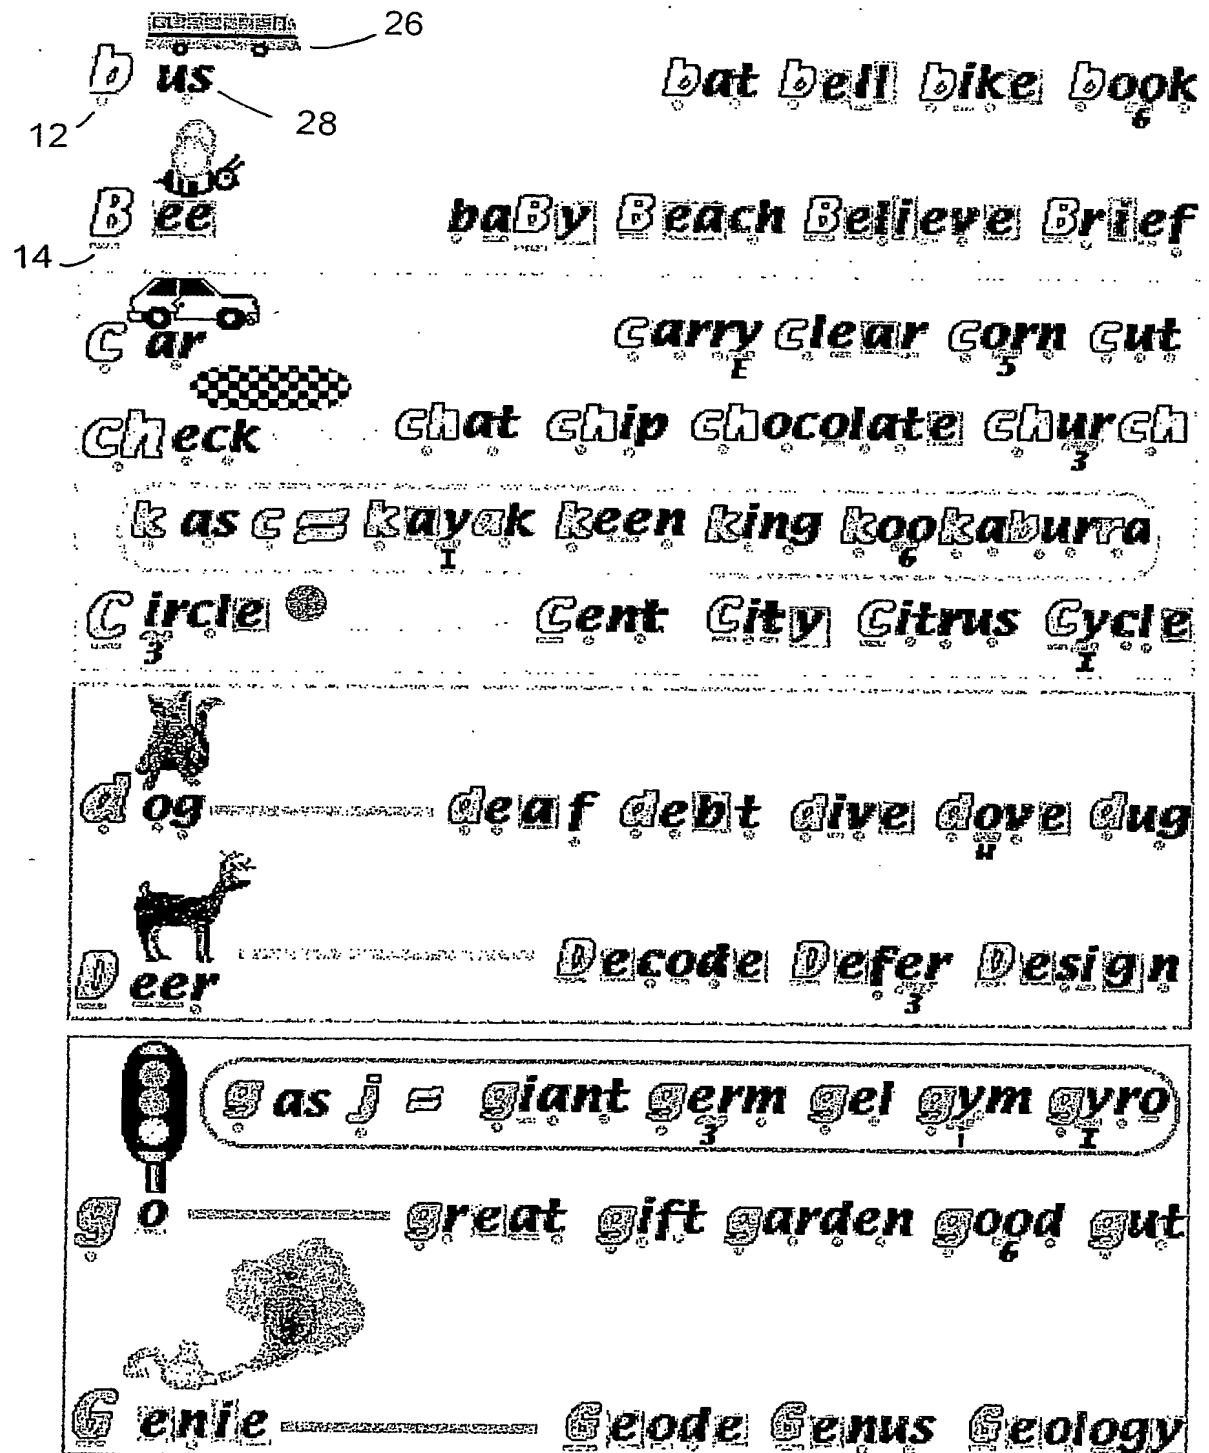 26
b us bat bell bike book
6
12 28
B ee baBy Beach Believe Brief
14
c ar carry clear corn cut
E 5
check chat chip chocolate church
3
k as c = kayak keen king kookaburra
I 6
Circle Cent City Citrus Cycle
3 I
d og deaf debt dive dove dug
H
D eer Decode Defer Design
3
g as j = giant germ gel gym gyro
3 i I
g o great gift garden good gut
6
G enie Geode Genus Geology